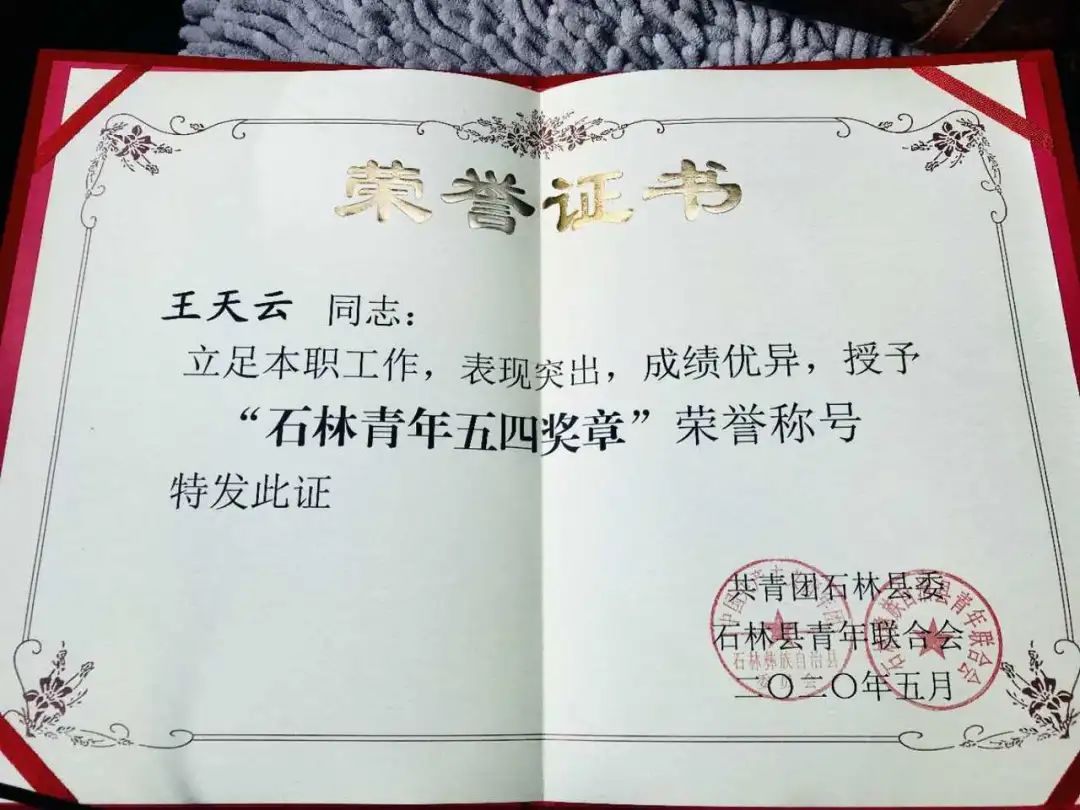 荣誉证书
王天云 同志：
立足本职工作，表现突出，成绩优异，授予
“石林青年五四奖章”荣誉称号
特发此证
共青团石林县委
石林县青年联合会
二〇二〇年五月
石林彝族自治县